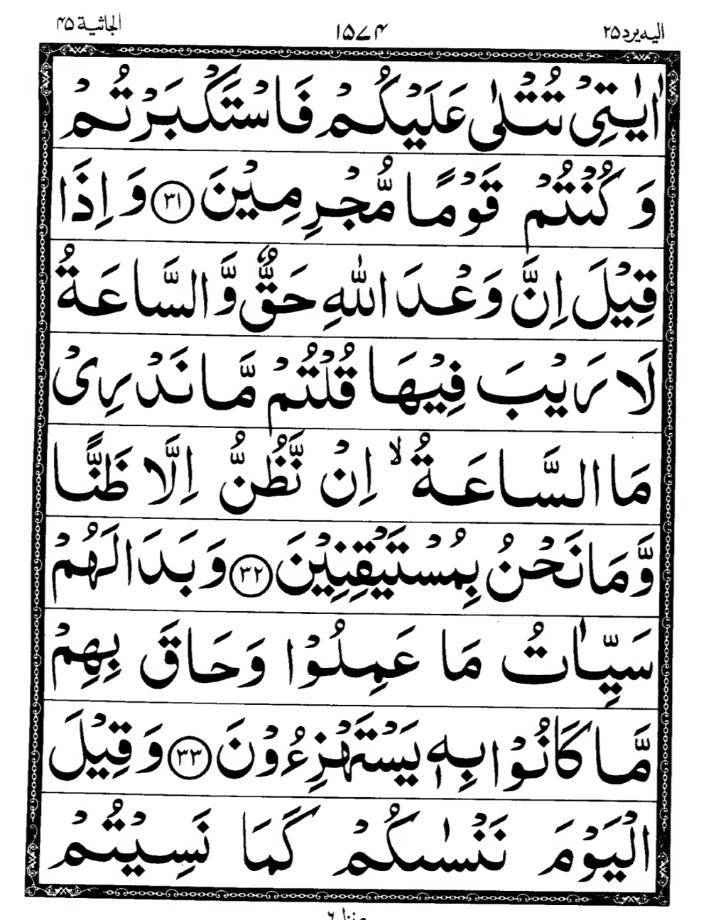 الیه یرد ۲۵ ۱۵۷۴ الجاثیة ۴۵
اٰیٰتِیْ تُتْلٰی عَلَیْكُمْ فَاسْتَكْبَرْتُمْ
وَ كُنْتُمْ قَوْمًا مُّجْرِمِیْنَ ﴿۳۱﴾ وَ اِذَا
قِیْلَ اِنَّ وَعْدَ اللّٰهِ حَقٌّ وَّ السَّاعَةُ
لَا رَیْبَ فِیْهَا قُلْتُمْ مَّا نَدْرِیْ
مَا السَّاعَةُ ۙ اِنْ نَّظُنُّ اِلَّا ظَنًّا
وَّ مَا نَحْنُ بِمُسْتَیْقِنِیْنَ ﴿۳۲﴾ وَ بَدَا لَهُمْ
سَیِّاٰتُ مَا عَمِلُوْا وَ حَاقَ بِهِمْ
مَّا كَانُوْا بِهٖ یَسْتَهْزِءُوْنَ ﴿۳۳﴾ وَ قِیْلَ
الْیَوْمَ نَنْسٰىكُمْ كَمَا نَسِیْتُمْ
منزل ۶